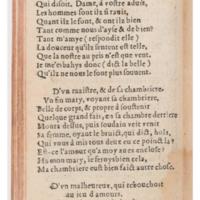 Qui disoit, Dame, à vostre aduis,
Les hommes sont ilz si rauis,
Quant ilz le font, & ont ilz bien
Tant comme nous d'ayse & de bien?
Tant m'amye (respondit elle)
La douceur qu'ilz sentent est telle,
Que la nostre au pris n'est que vent.
Ie m'esbahys donc (dist la belle)
Qu'ilz ne nous le font plus souuent.
D'vn maistre, & de sa chambriere.
Vn son mary, voyant la chambriere,
Belle de corps, & propre à soustenir
Quelque grand faix, en sa chambre derriere
Monta dessus, puis soudain voit venir
Sa femme, oyant le bruict, qui dict, hola,
Qui vous à mis tous deux en ce poinct la?
Est-ce l'amour qu'à moy auez enclose?
Ha mon mary, je feroys bien cela,
Ma chambriere eust bien faict autre chose.
D'vn malheureux, qui rebouchoit
au jeu d'amours.